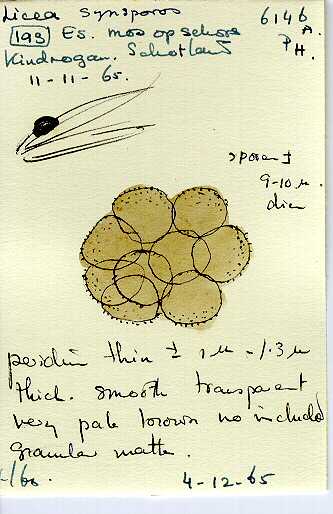 Licea synsporos
6146
A.
P H.
193 Es. mos op schors
Kindrogan. Schotland
11-11-65.
sporen ±
9-10 µ.
diam
peridium thin ± 1 µ - 1.3 µ
thick. smooth transparent
very pale brown no included
granular matter.
4-12-65